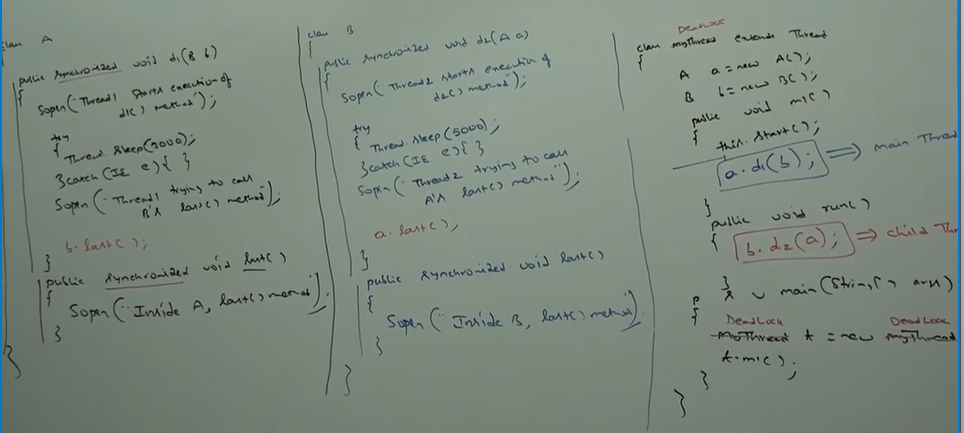 class A
{
public synchronized void d1(B b)
{
Sopln("Thread1 starts execution of
d1() method");
try
{
Thread.sleep(5000);
}catch(IE e){ }
Sopln("Thread1 trying to call
B's last() method");
b.last();
}
public synchronized void last()
{
Sopln("Inside A, last() method");
}
}
class B
{
public synchronized void d2(A a)
{
Sopln("Thread2 starts execution of
d2() method");
try
{
Thread.sleep(5000);
}catch(IE e){ }
Sopln("Thread2 trying to call
A's last() method");
a.last();
}
public synchronized void last()
{
Sopln("Inside B, last() method");
}
}
DeadLock
class MyThread extends Thread
{
A a = new A();
B b = new B();
public void m1()
{
this.start();
a.d1(b); ⇒ main Thread
}
public void run()
{
b.d2(a); ⇒ child Th
}
p s v main(String[] args)
{
DeadLock DeadLock
MyThread t = new MyThread
t.m1();
}
}